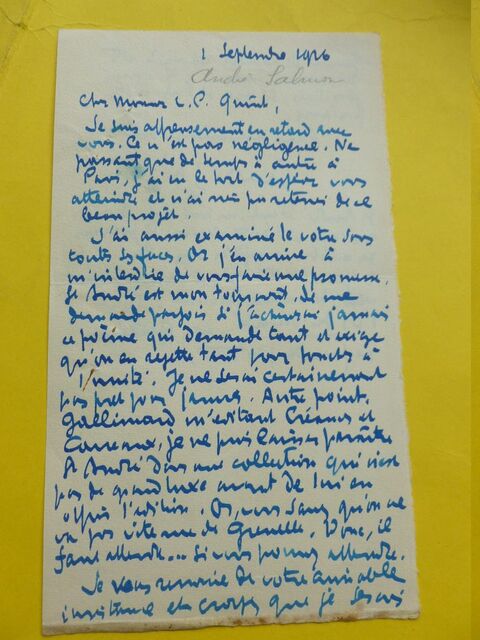 1 Septembre 1926
André Salmon
Cher Monsieur L. P. Quint,
Je suis affreusement en retard avec
vous. Ce n'est pas négligence. Ne
passant que de temps à autre à
Paris, j'ai eu le tort d'espérer vous
atteindre et n'ai rien pu retenir de ce
beau projet.
J'ai aussi examiné le votre sous
toutes ses faces. Or j'en arrive à
m'interdire de vous faire une promesse.
St André est mon tourment. Je me
demande parfois si j'achèverai jamais
ce poème qui demande tant et exige
qu'on en rejette tant pour tendre à
l'unité. Je ne serai certainement
pas prêt pour janvier. Autre point,
Gallimard m'éditant Créances et
Carreaux, je ne puis laisser paraître
St André dans une collection qui n'est
pas de grand luxe avant de lui en
offrir l'édition. Or, vous savez qu'on ne
va pas vite rue de Grenelle. Donc, il
faut attendre... si vous pouvez attendre.
Je vous remercie de votre aimable
insistance et croyez que je serais